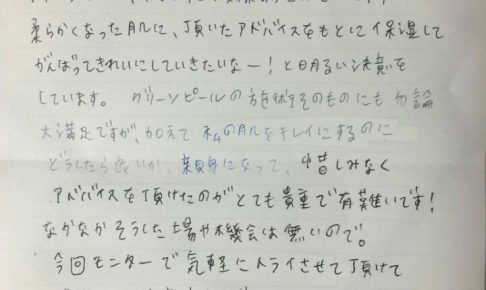 柔らかくなった肌に、頂いたアドバイスをもとに保湿して
がんばってきれいにしていきたいなー！と明るい決意を
しています。 グリーンピールの施術そのものにも勿論
大満足ですが、加えて私の肌をキレイにするのに
どうしたら良いか、親身になって、惜しみなく
アドバイスを頂けたのがとても貴重で有難いです！
なかなかそうした場や機会は無いので。
今回モニターで気軽にトライさせて頂けて